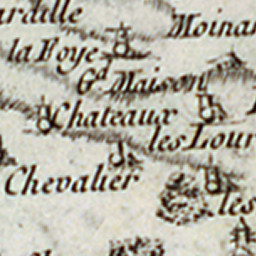 ardille
Moinar
la Foye
Gd. Maison
Chateaux
les Lour
Chevalier
les